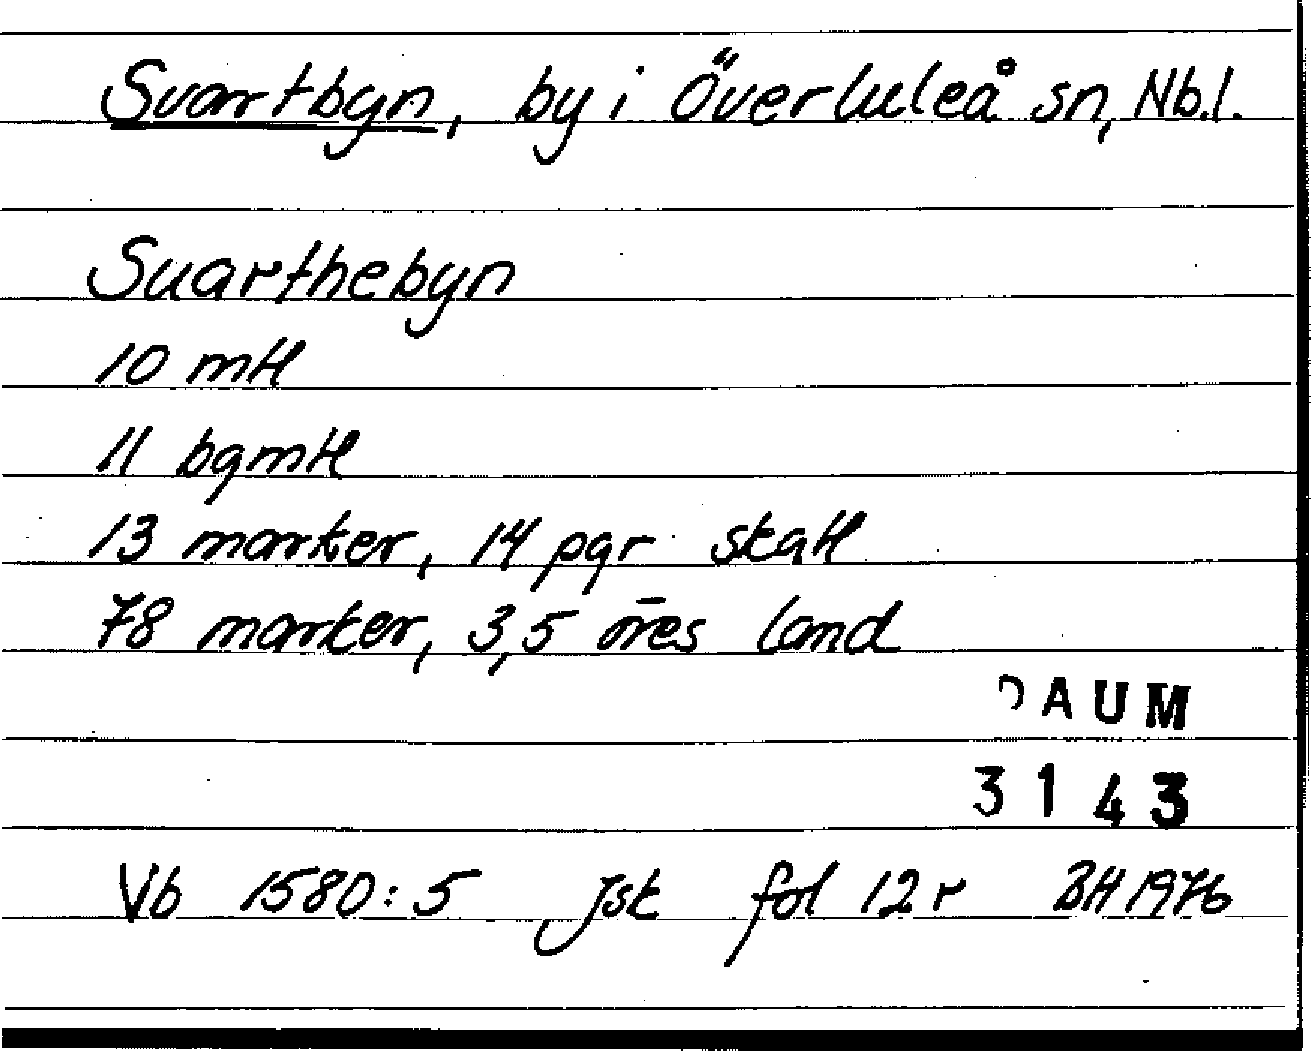 Svartbyn, by i Överluleå sn, Nb.l.
Suarthebyn
10 mtl
11 bgmtl
13 marker, 14 pgr skatt
78 marker, 3,5 öres land
DAUM
3143
Vb 1580:5 Jsk fol 12r BH 1976